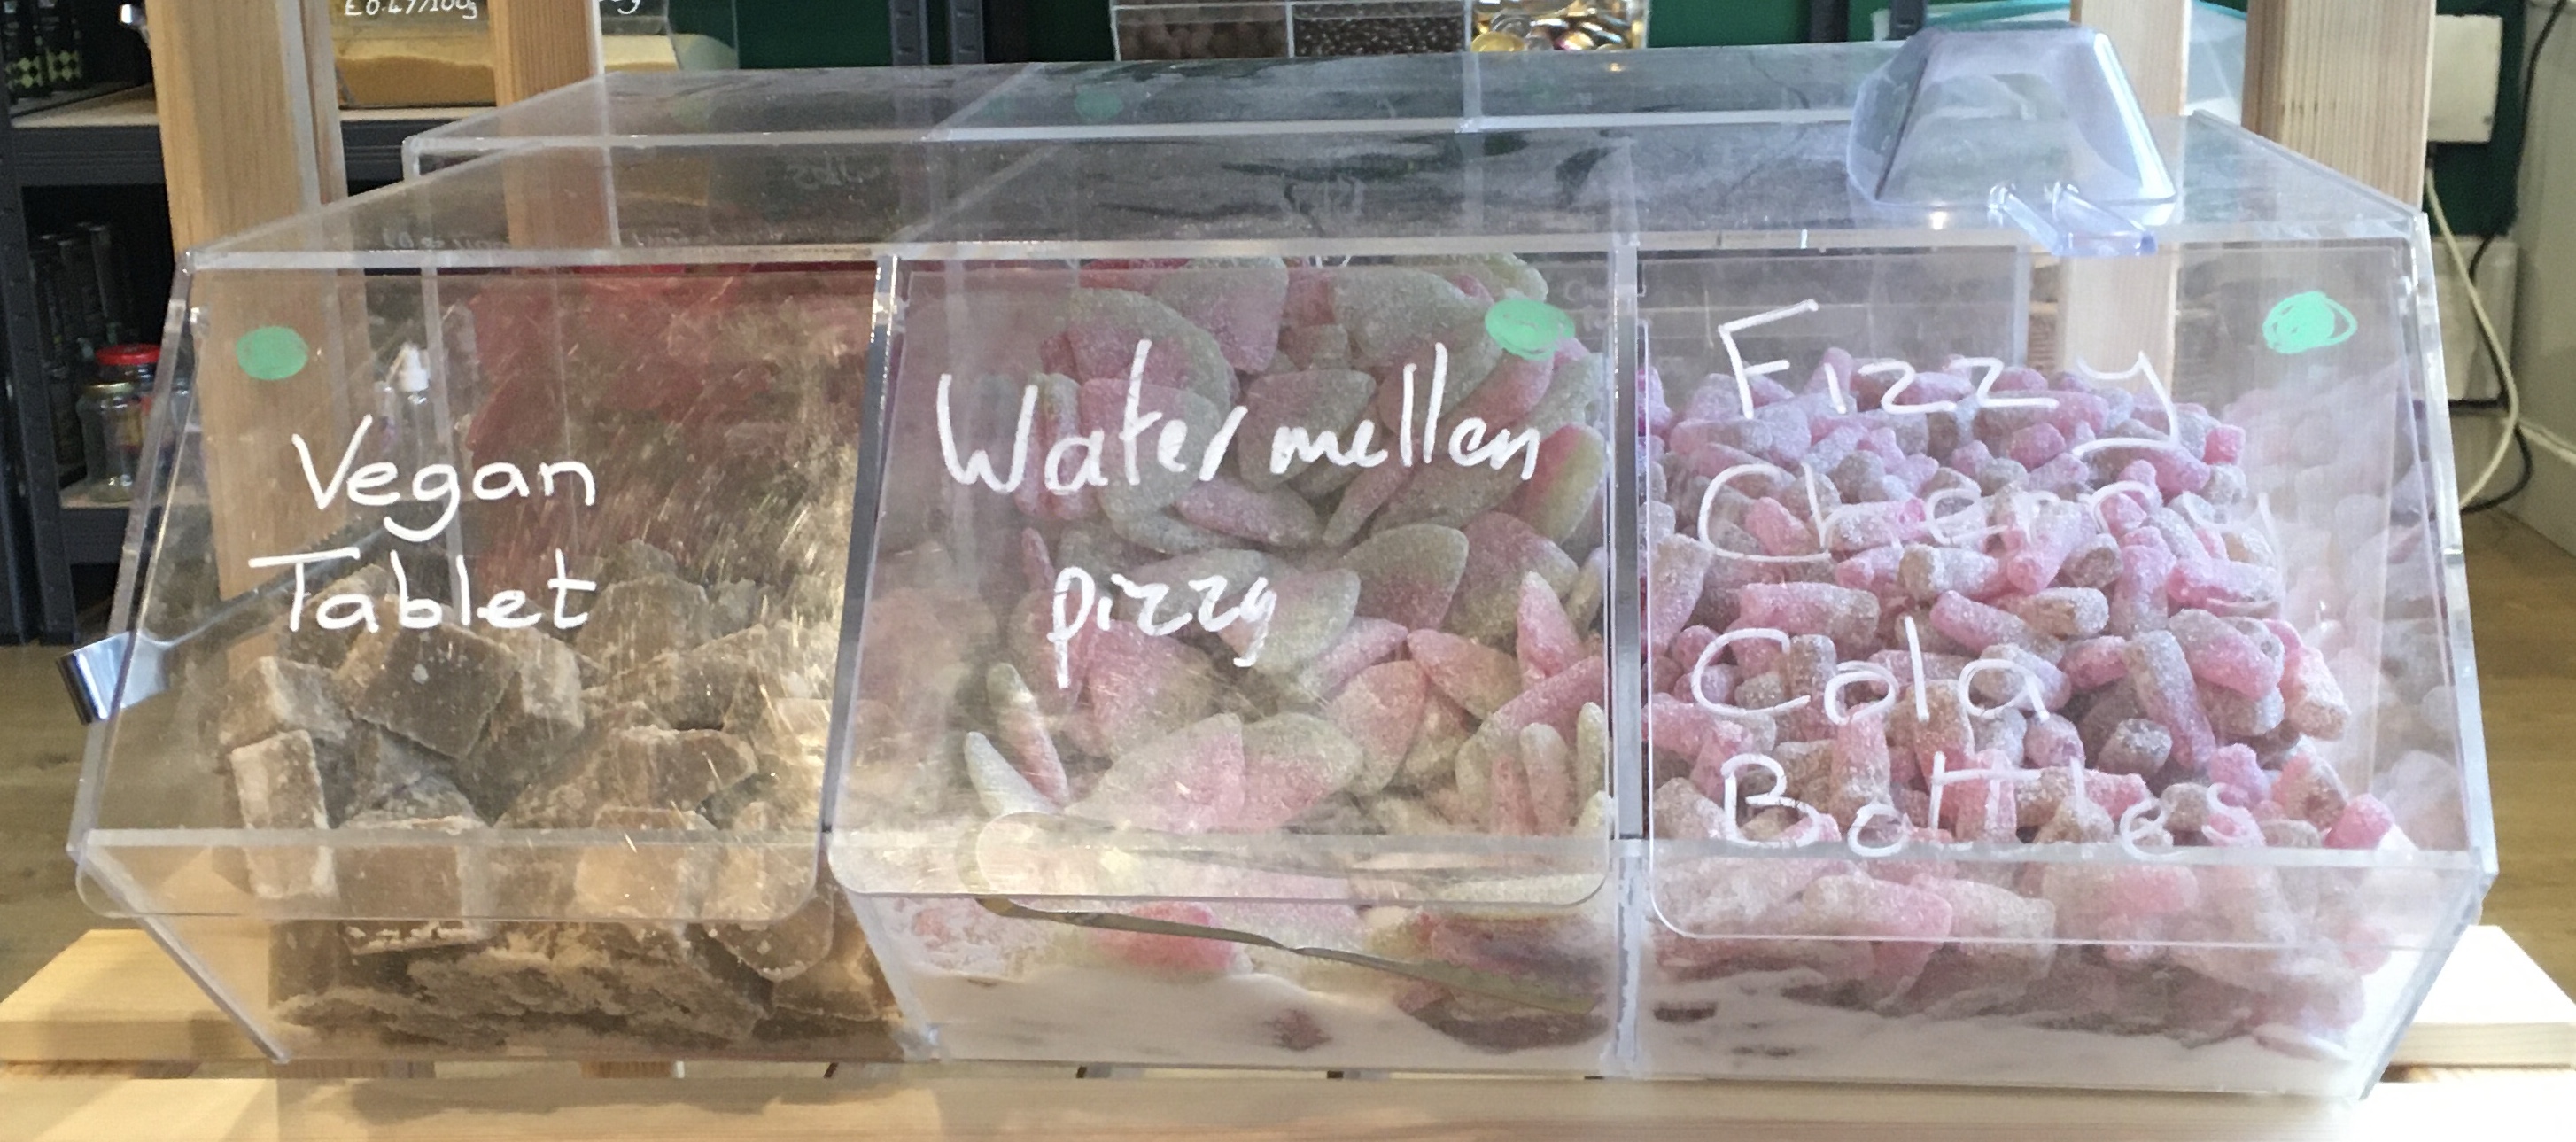 £0.49/100g
Vegan
Tablet
Watermellon
pizza
Fizzy
Cherry
Cola
Bottles